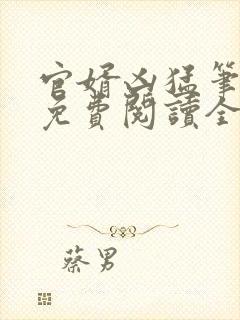 官婿凶猛筆
免費閱讀全
蔡男